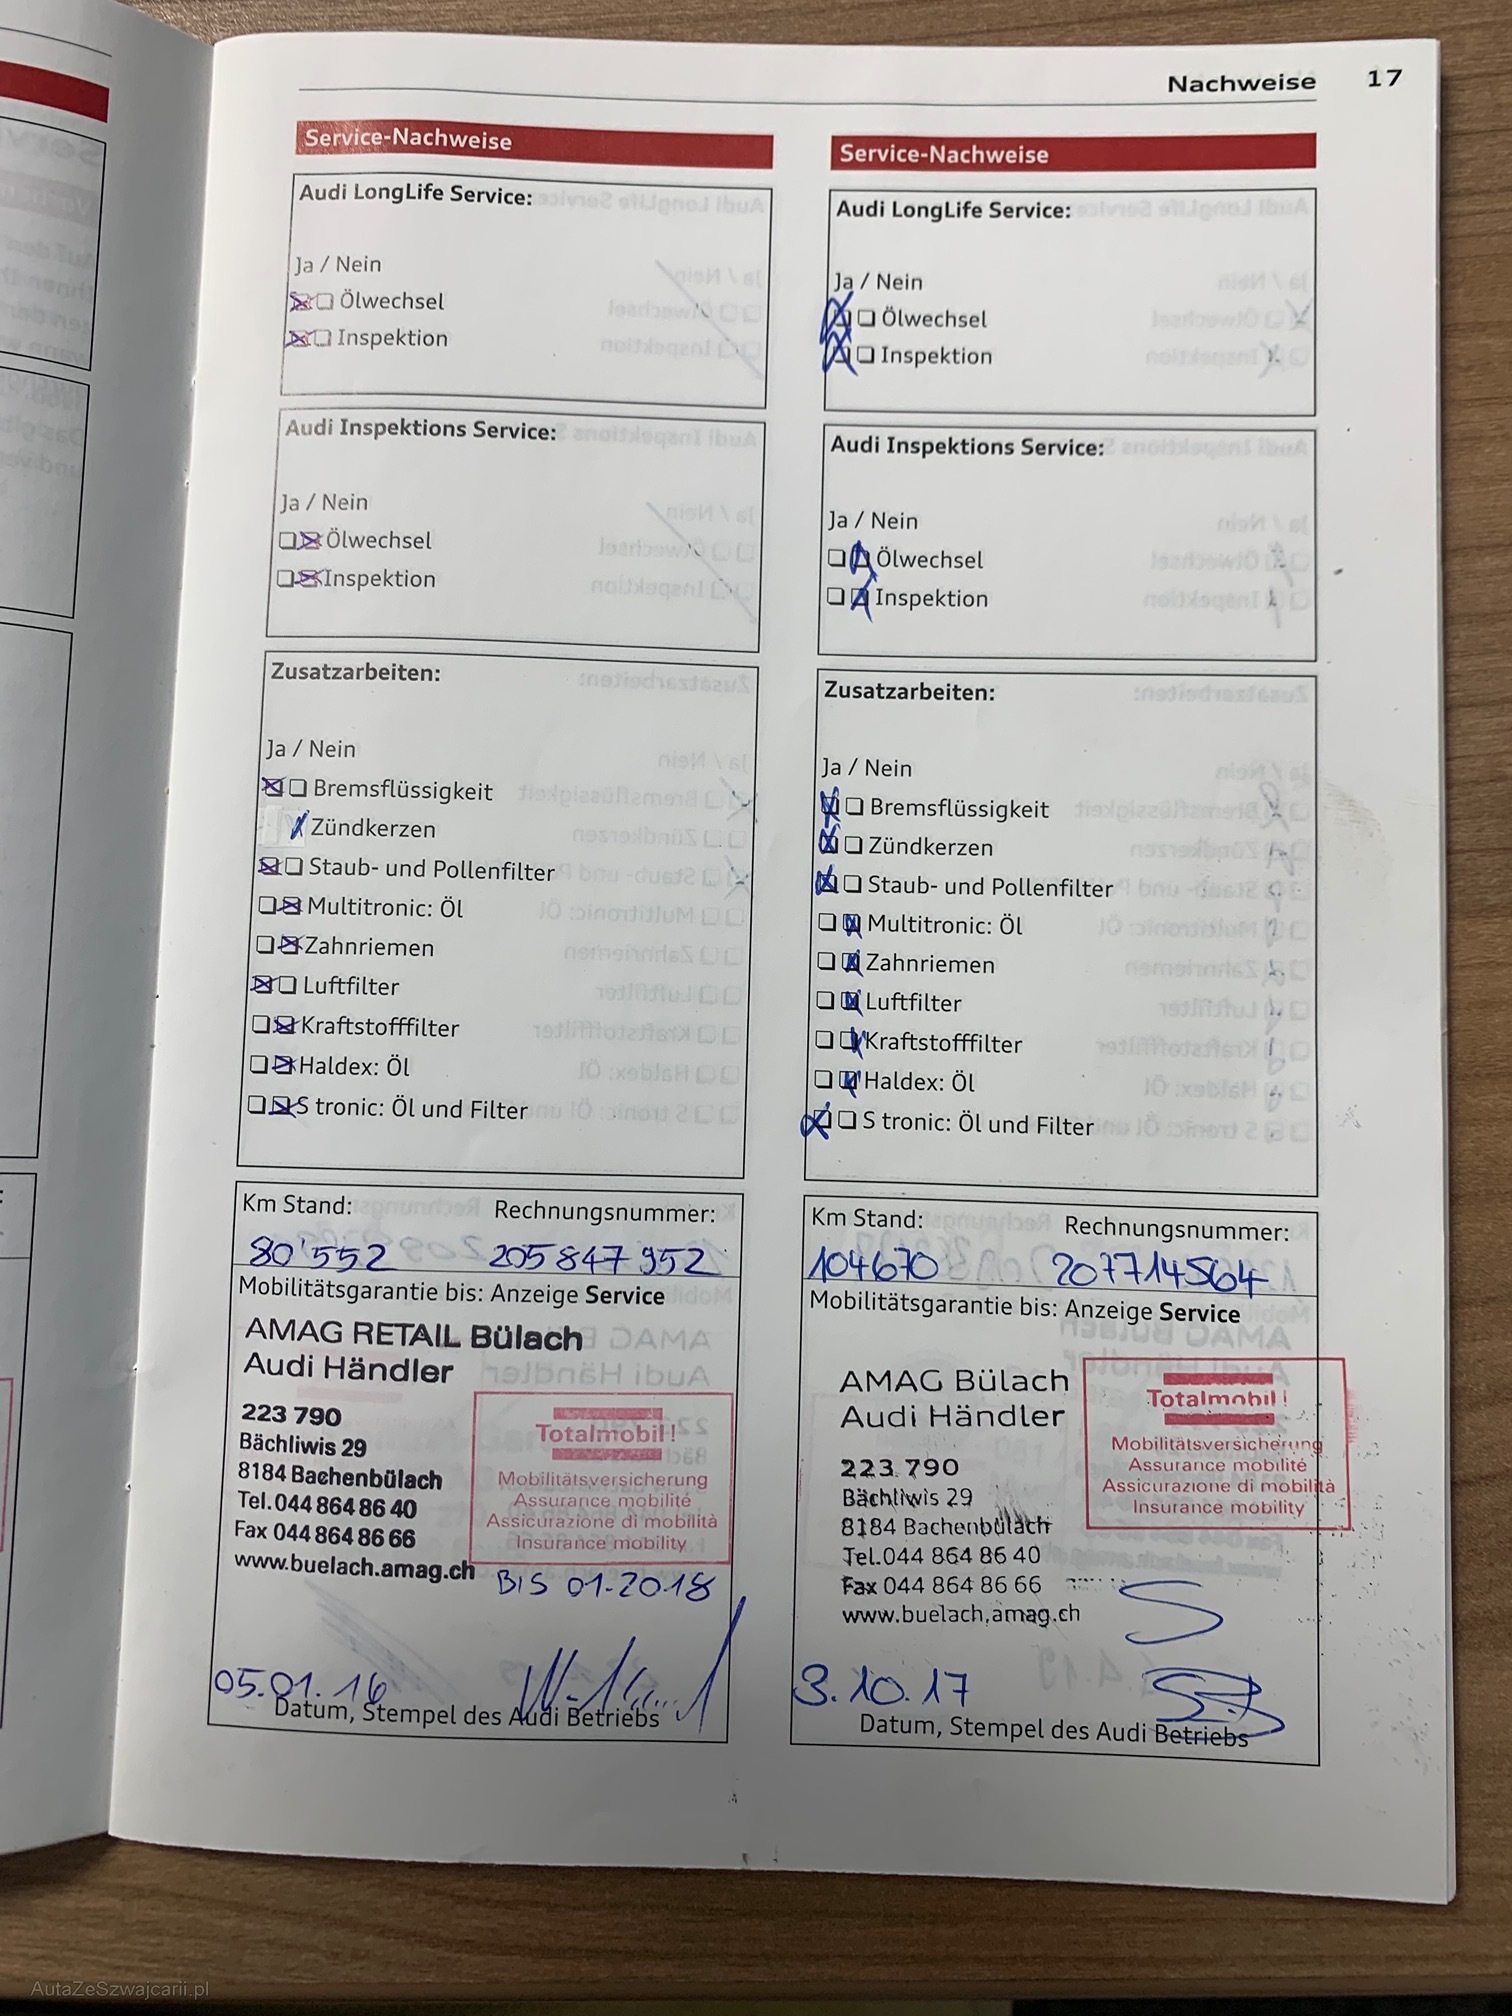 Nachweise 17
Service-Nachweise
Audi LongLife Service:
Ja / Nein
Ölwechsel
Inspektion
Audi Inspektions Service:
Ja / Nein
Ölwechsel
Inspektion
Zusatzarbeiten:
Ja / Nein
Bremsflüssigkeit
Zündkerzen
Staub- und Pollenfilter
Multitronic: Öl
Zahnriemen
Luftfilter
Kraftstofffilter
Haldex: Öl
S tronic: Öl und Filter
Km Stand: Rechnungsnummer:
80'552 205847952
Mobilitätsgarantie bis: Anzeige Service
AMAG RETAIL Bülach
Audi Händler
223 790
Bächliwis 29
8184 Bachenbülach
Tel. 044 864 86 40
Fax 044 864 86 66
www.buelach.amag.ch
Totalmobil!
Mobilitätsversicherung
Assurance mobilité
Assicurazione di mobilità
Insurance mobility
BIS 01.2018
05.01.16
Datum, Stempel des Audi Betriebs
Service-Nachweise
Audi LongLife Service:
Ja / Nein
Ölwechsel
Inspektion
Audi Inspektions Service:
Ja / Nein
Ölwechsel
Inspektion
Zusatzarbeiten:
Ja / Nein
Bremsflüssigkeit
Zündkerzen
Staub- und Pollenfilter
Multitronic: Öl
Zahnriemen
Luftfilter
Kraftstofffilter
Haldex: Öl
S tronic: Öl und Filter
Km Stand: Rechnungsnummer:
104670 207714564
Mobilitätsgarantie bis: Anzeige Service
AMAG Bülach
Audi Händler
223 790
Bächliwis 29
8184 Bachenbülach
Tel. 044 864 86 40
Fax 044 864 86 66
www.buelach.amag.ch
Totalmobil!
Mobilitätsversicherung
Assurance mobilité
Assicurazione di mobilità
Insurance mobility
3.10.17
Datum, Stempel des Audi Betriebs
AutaZeSzwajcarii.pl